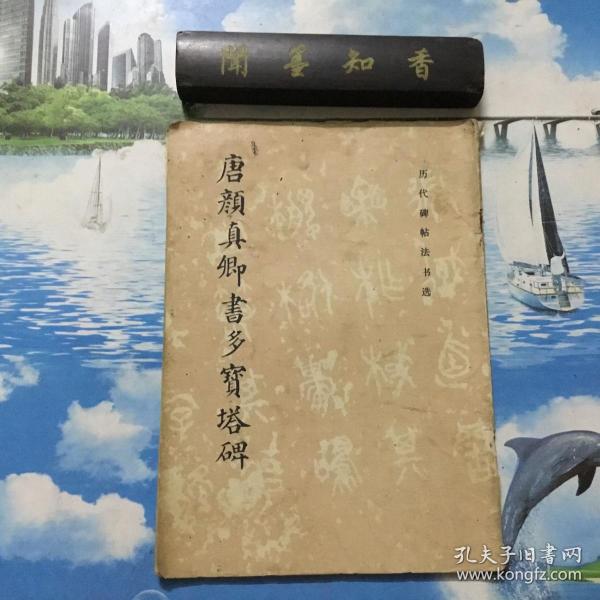 聞墨知香
唐顏真卿書多寶塔碑
历代碑帖法书选
孔夫子旧书网
www.kongfz.com